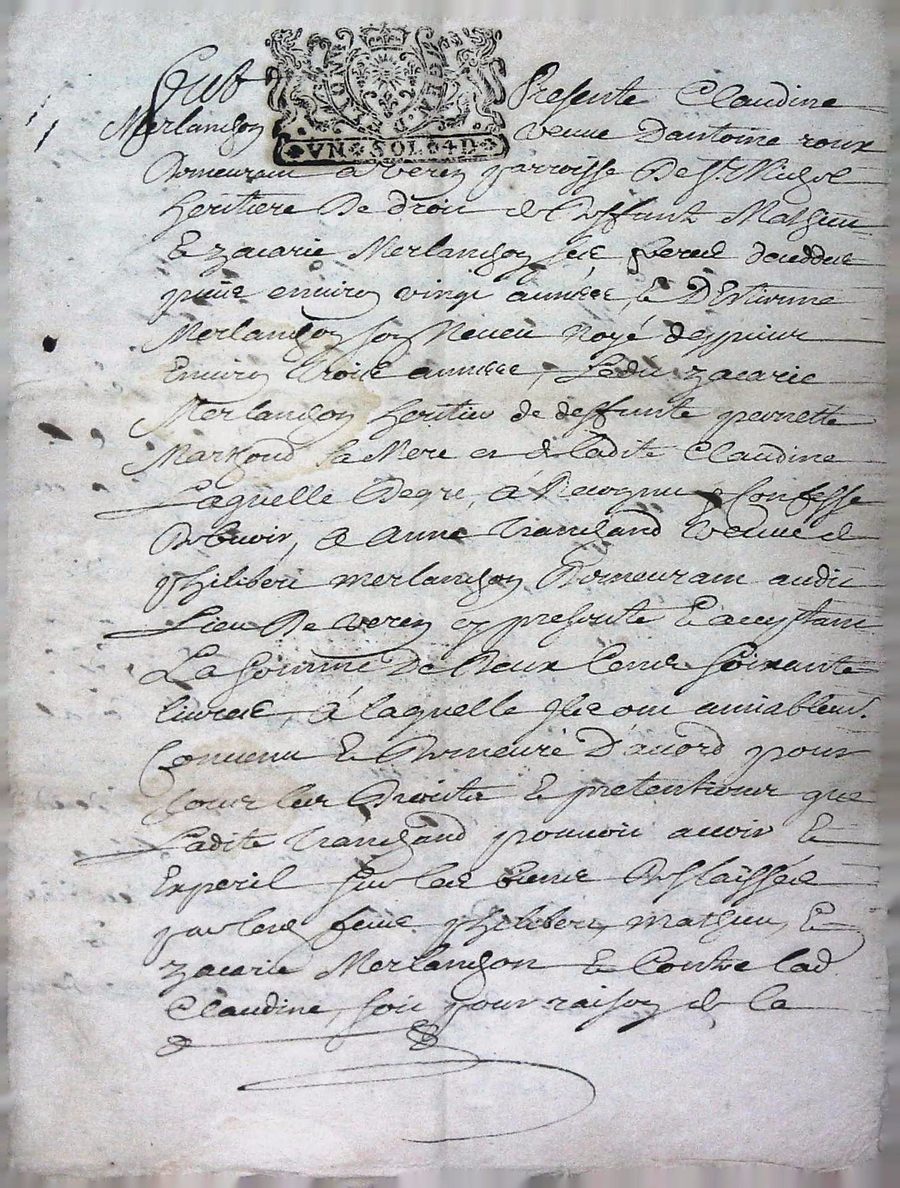 MOYEN D
LYON
VN SOL 4D
Fut Presente Claudine
Merlanchon veuve Dantoine roux
Demeurant a veren parroisse De St Nizol
heritiere De droit de Deffunt Mathieu
Et zacarie Merlanchon ses freres deceddes
puis environ vingt années, et D'Estienne
Merlanchon son Neveu Noyé deppuis
Environ trois années, Ledit zacarie
Merlanchon heritier de deffunte pernette
sa Mere et de ladite Claudine
Laquelle Degre, a Recognu et Confesse
Debvoir, a Anne Tranchand veuve de
philibert merlanchon Demeurant audit
Lieu De veren cy presente Et acceptant
La somme De Deux Cent soixante
livres, à laquelle Ils ont amiablemt.
Convenu Et Demeuré D'acord pour
tous les Droits Et pretentions que
Ladite Tranchand pouvoit avoir Et
Experil sur les biens Deslaissés
par les feus philibert, mathieu, Et
zacarie Merlanchon Et Contre lad.
Claudine, soit pour raison de la